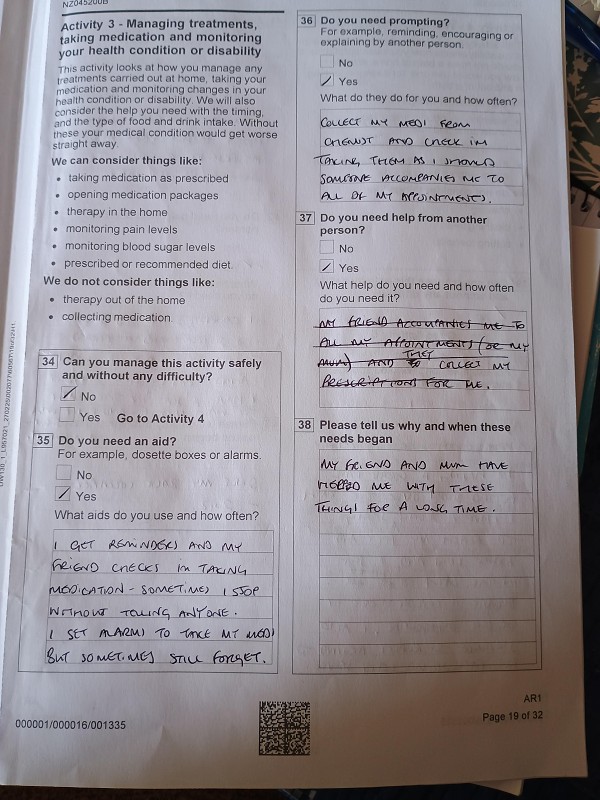 NZ045200B
Activity 3 - Managing treatments,
taking medication and monitoring
your health condition or disability
This activity looks at how you manage any
treatments carried out at home, taking your
medication and monitoring changes in your
health condition or disability. We will also
consider the help you need with the timing,
and the type of food and drink intake. Without
these your medical condition would get worse
straight away.
We can consider things like:
• taking medication as prescribed
• opening medication packages
• therapy in the home
• monitoring pain levels
• monitoring blood sugar levels
• prescribed or recommended diet.
We do not consider things like:
• therapy out of the home
• collecting medication.
34 Can you manage this activity safely
and without any difficulty?
No
Yes Go to Activity 4
35 Do you need an aid?
For example, dosette boxes or alarms.
No
Yes
What aids do you use and how often?
I GET REMINDERS AND MY
FRIEND CHECKS IM TAKING
MEDICATION - SOMETIMES I STOP
WITHOUT TELLING ANYONE.
I SET ALARMS TO TAKE MY MEDS
BUT SOMETIMES STILL FORGET.
36 Do you need prompting?
For example, reminding, encouraging or
explaining by another person.
No
Yes
What do they do for you and how often?
COLLECT MY MEDS FROM
CHEMIST AND CHECK IM
TAKING THEM AS I SHOULD
SOMEONE ACCOMPANIES ME TO
ALL OF MY APPOINTMENTS.
37 Do you need help from another
person?
No
Yes
What help do you need and how often
do you need it?
MY FRIEND ACCOMPANIES ME TO
ALL MY APPOINTMENTS (OR MY
MUM) AND THEY COLLECT MY
PRESCRIPTIONS FOR ME.
38 Please tell us why and when these
needs began
MY FRIEND AND MUM HAVE
HELPED ME WITH THESE
THINGS FOR A LONG TIME.
000001/000016/001335
AR1
Page 19 of 32